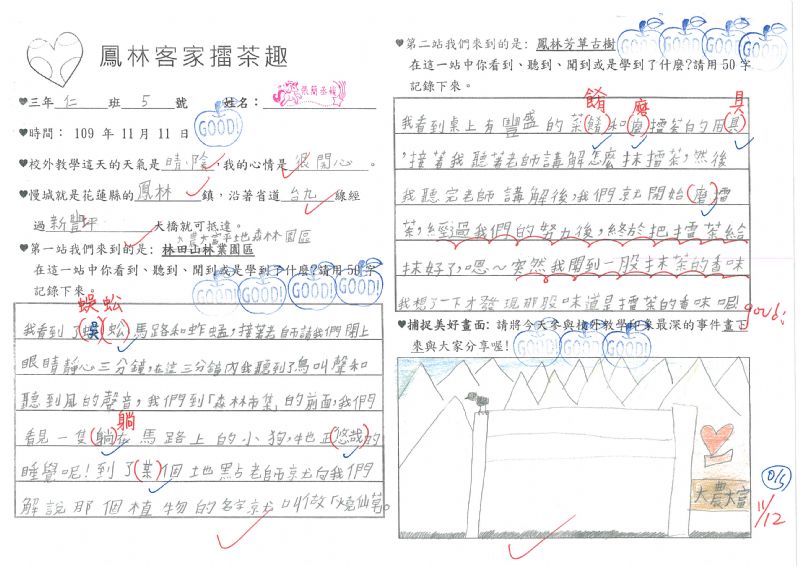 鳳林客家擂茶趣
♥三年 仁 班 5 號 姓名:
♥時間: 109 年 11 月 11 日
GOOD!
♥校外教學這天的天氣是 晴、陰 ,我的心情是 很開心 。
♥慢城就是花蓮縣的 鳳林 鎮,沿著省道 台九 線經
過 新豐坪 天橋就可抵達。
大農大富平地森林園區
♥第一站我們來到的是: 林田山林業園區
在這一站中你看到、聽到、聞到或是學到了什麼?請用50字
記錄下來。
GOOD! GOOD! GOOD! GOOD!
蜈蚣
我看到了(蜈)蚣、馬路和蚱蜢,接著老師請我們閉上
眼睛靜心三分鐘,在這三分鐘內我聽到了鳥叫聲和
聽到風的聲音,我們到「森林市集」的前面,我們
躺
看見一隻(躺)在馬路上的小狗,牠正(悠哉)的
睡覺呢!到了(某)個地點老師就向我們
解說那個植物的名字就叫做「燒仙草」。
♥第二站我們來到的是: 鳳林芳草古樹
在這一站中你看到、聽到、聞到或是學到了什麼?請用50字
記錄下來。
餚 磨 具
我看到桌上有豐盛的菜(餚)和(磨)擂茶的用(具)
,接著我聽著老師講解怎麼抹擂茶,然後
我聽完老師講解後,我們就開始(磨)擂
茶,經過我們的努力後,終於把擂茶給
抹好了,恩~突然我聞到一股抹茶的香味
我想了一下才發現那股味道是擂茶的香味呢!
good!
♥捕捉美好畫面: 請將今天參與校外教學印象最深的事件畫下
來與大家分享喔!
GOOD! GOOD! GOOD!
大農大富
11/12